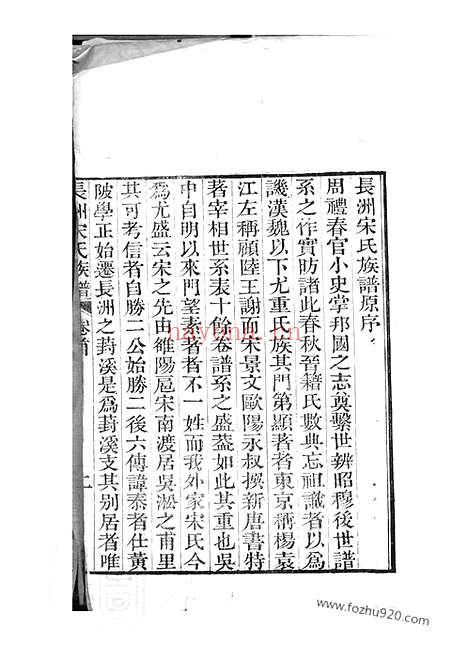 長洲宋氏族譜原序
周禮春官小史掌邦國之志奠繫世辨昭穆後世譜
系之作實昉諸此春秋晉籍氏數典忘祖識者以為
譏漢魏以下尤重氏族其門第顯著者東京稱楊袁
江左稱顧陸王謝而宋景文歐陽永叔撰新唐書特
著宰相世系表十餘卷譜系之盛葢如此其重也吳
中自明以來門望素著者不一姓而我外家宋氏今
為尤盛云宋之先由雎陽扈宋南渡居吳淞之甫里
其可考信者自勝二公始勝二後六傳諱泰者仕黃
陂學正始遷長洲之葑溪是為葑溪支其別居者唯
長洲宋氏族譜 卷首 一
haytona.cn
www.fozhu920.com